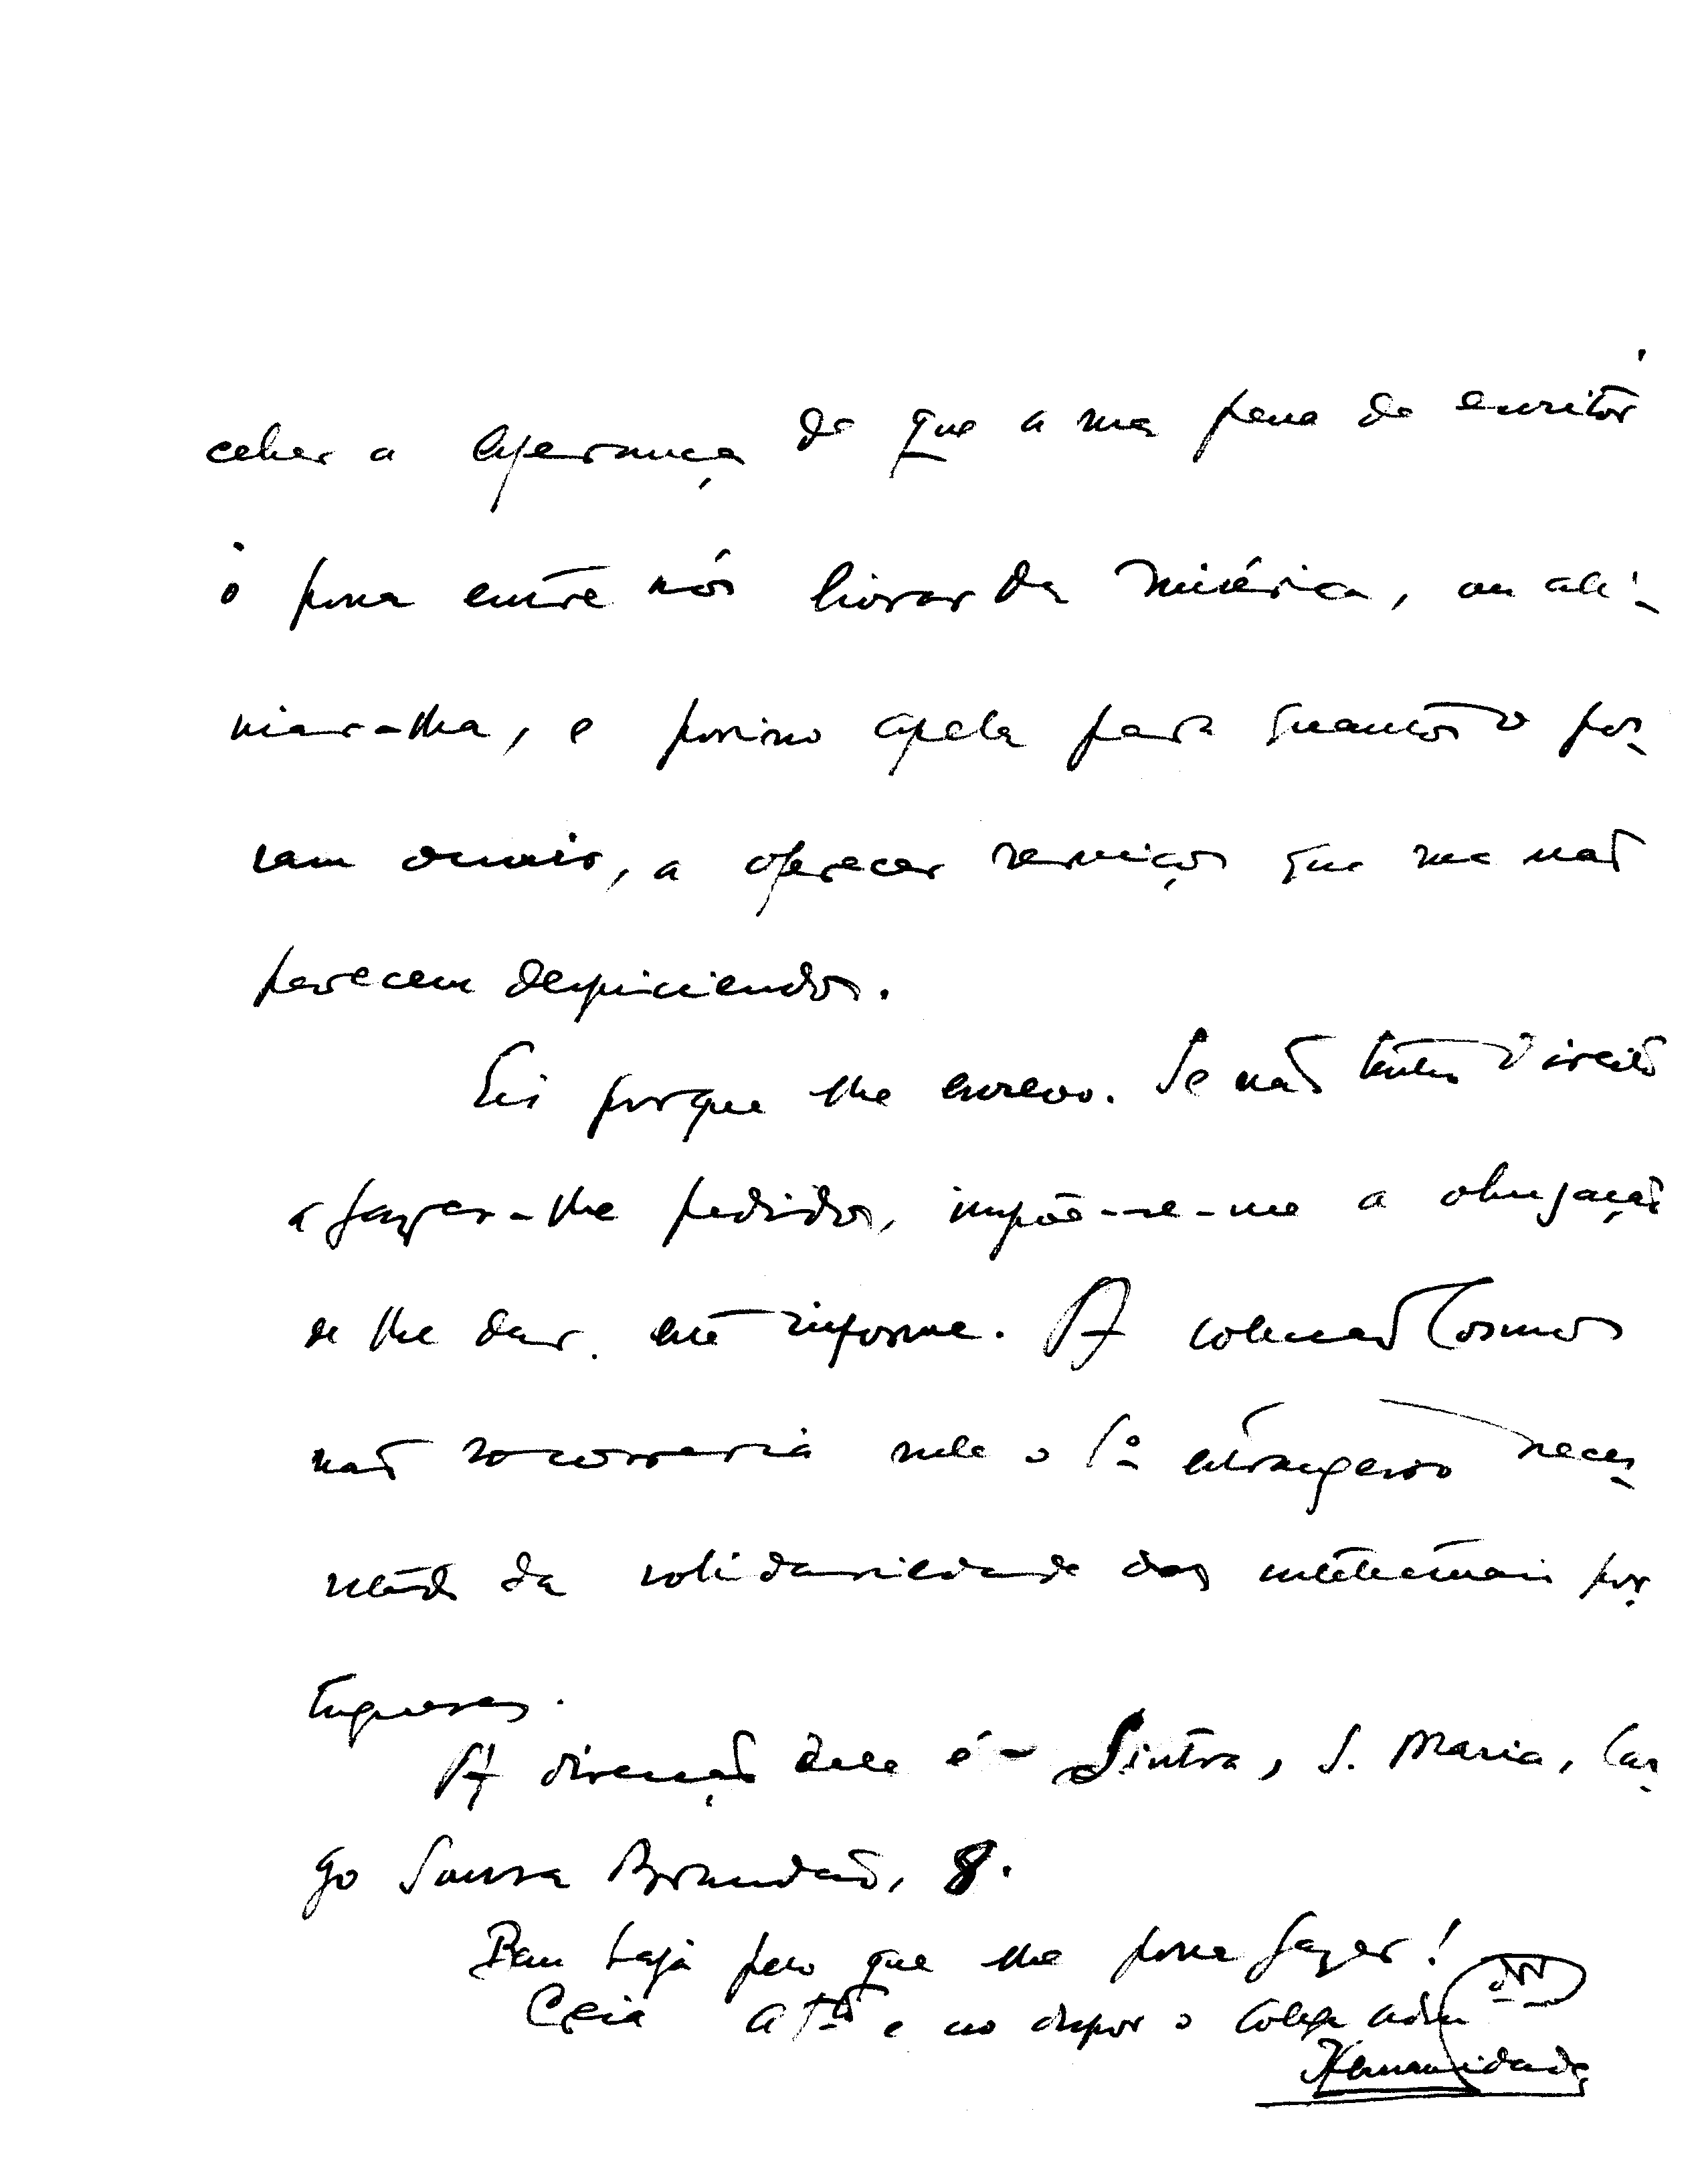 ceber a esperança de que a sua pena de escritor
o possa entre nós livrar da miséria, ou ali-
viar-lha, e por isso apela para quantos o pos-
sam ouvir, a oferecer serviços que me não
parecem despiciendos.
Eis porque lhe escrevo. Se não tenho direito
a fazer-lhe pedidos, impõe-se-me a obrigação
de lhe dar este informe. A colecção Cosmos
não socorreria nele o 1º estrangeiro neces-
sitado da solidariedade dos intelectuais por-
tugueses.
A direcção dele é - Sintra, S. Maria, Lar-
go Sousa Brandão, 8.
Bem haja pelo que lhe possa fazer!
Creia attº e ao dispor o colega